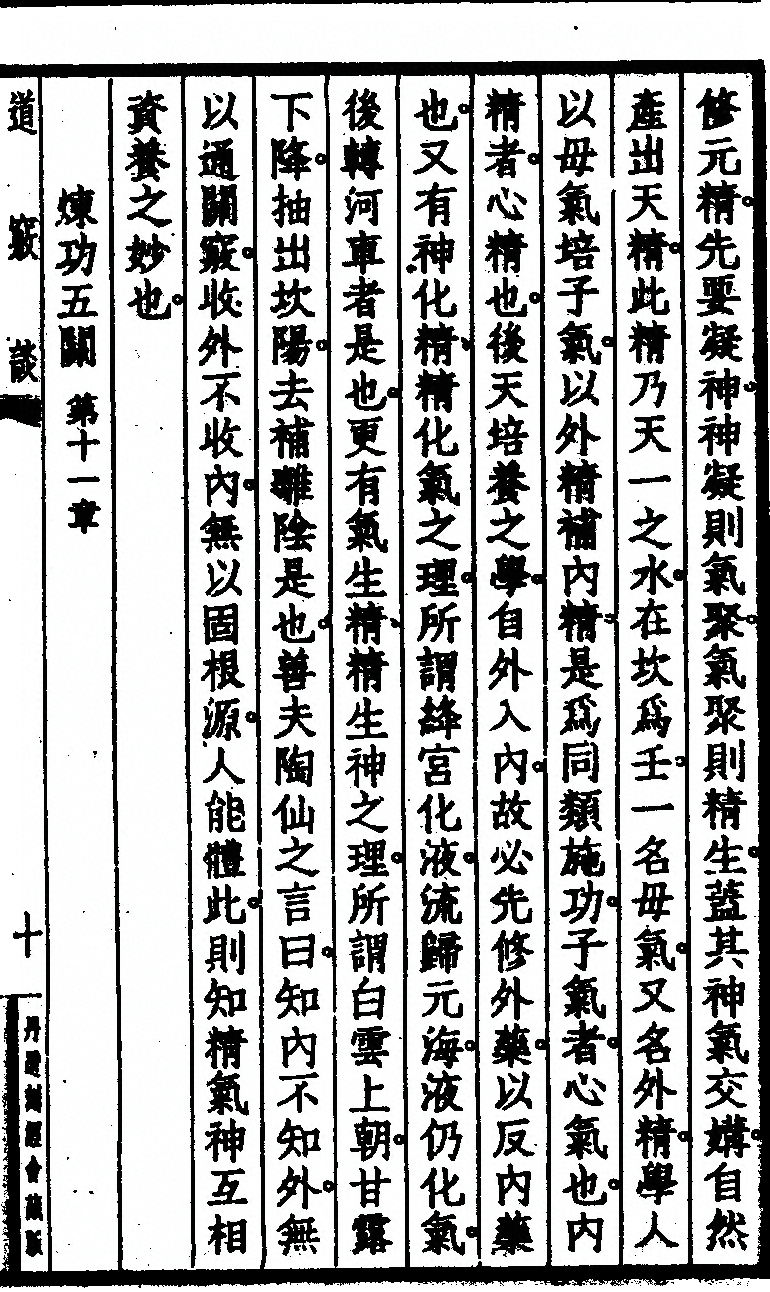 修元精。先要凝神。神凝則氣聚。氣聚則精生。蓋其神氣交媾。自然
產出天精。此精乃天一之水。在坎爲壬。一名母氣。又名外精。學人
以母氣培子氣。以外精補內精。是爲同類施功。子氣者。心氣也。內
精者。心精也。後天培養之學。自外入內。故必先修外藥。以反內藥
也。又有神化精、精化氣之理。所謂絳宮化液。流歸元海。液仍化氣。
後轉河車者是也。更有氣生精、精生神之理。所謂白雲上朝。甘露
下降。抽出坎陽。去補離陰是也。善夫陶仙之言曰。知內不知外。無
以通關竅。收外不收內。無以固根源。人能體此。則知精氣神互相
資養之妙也。
煉功五關 第十一章
道竅談 十 丹道刻經會藏版